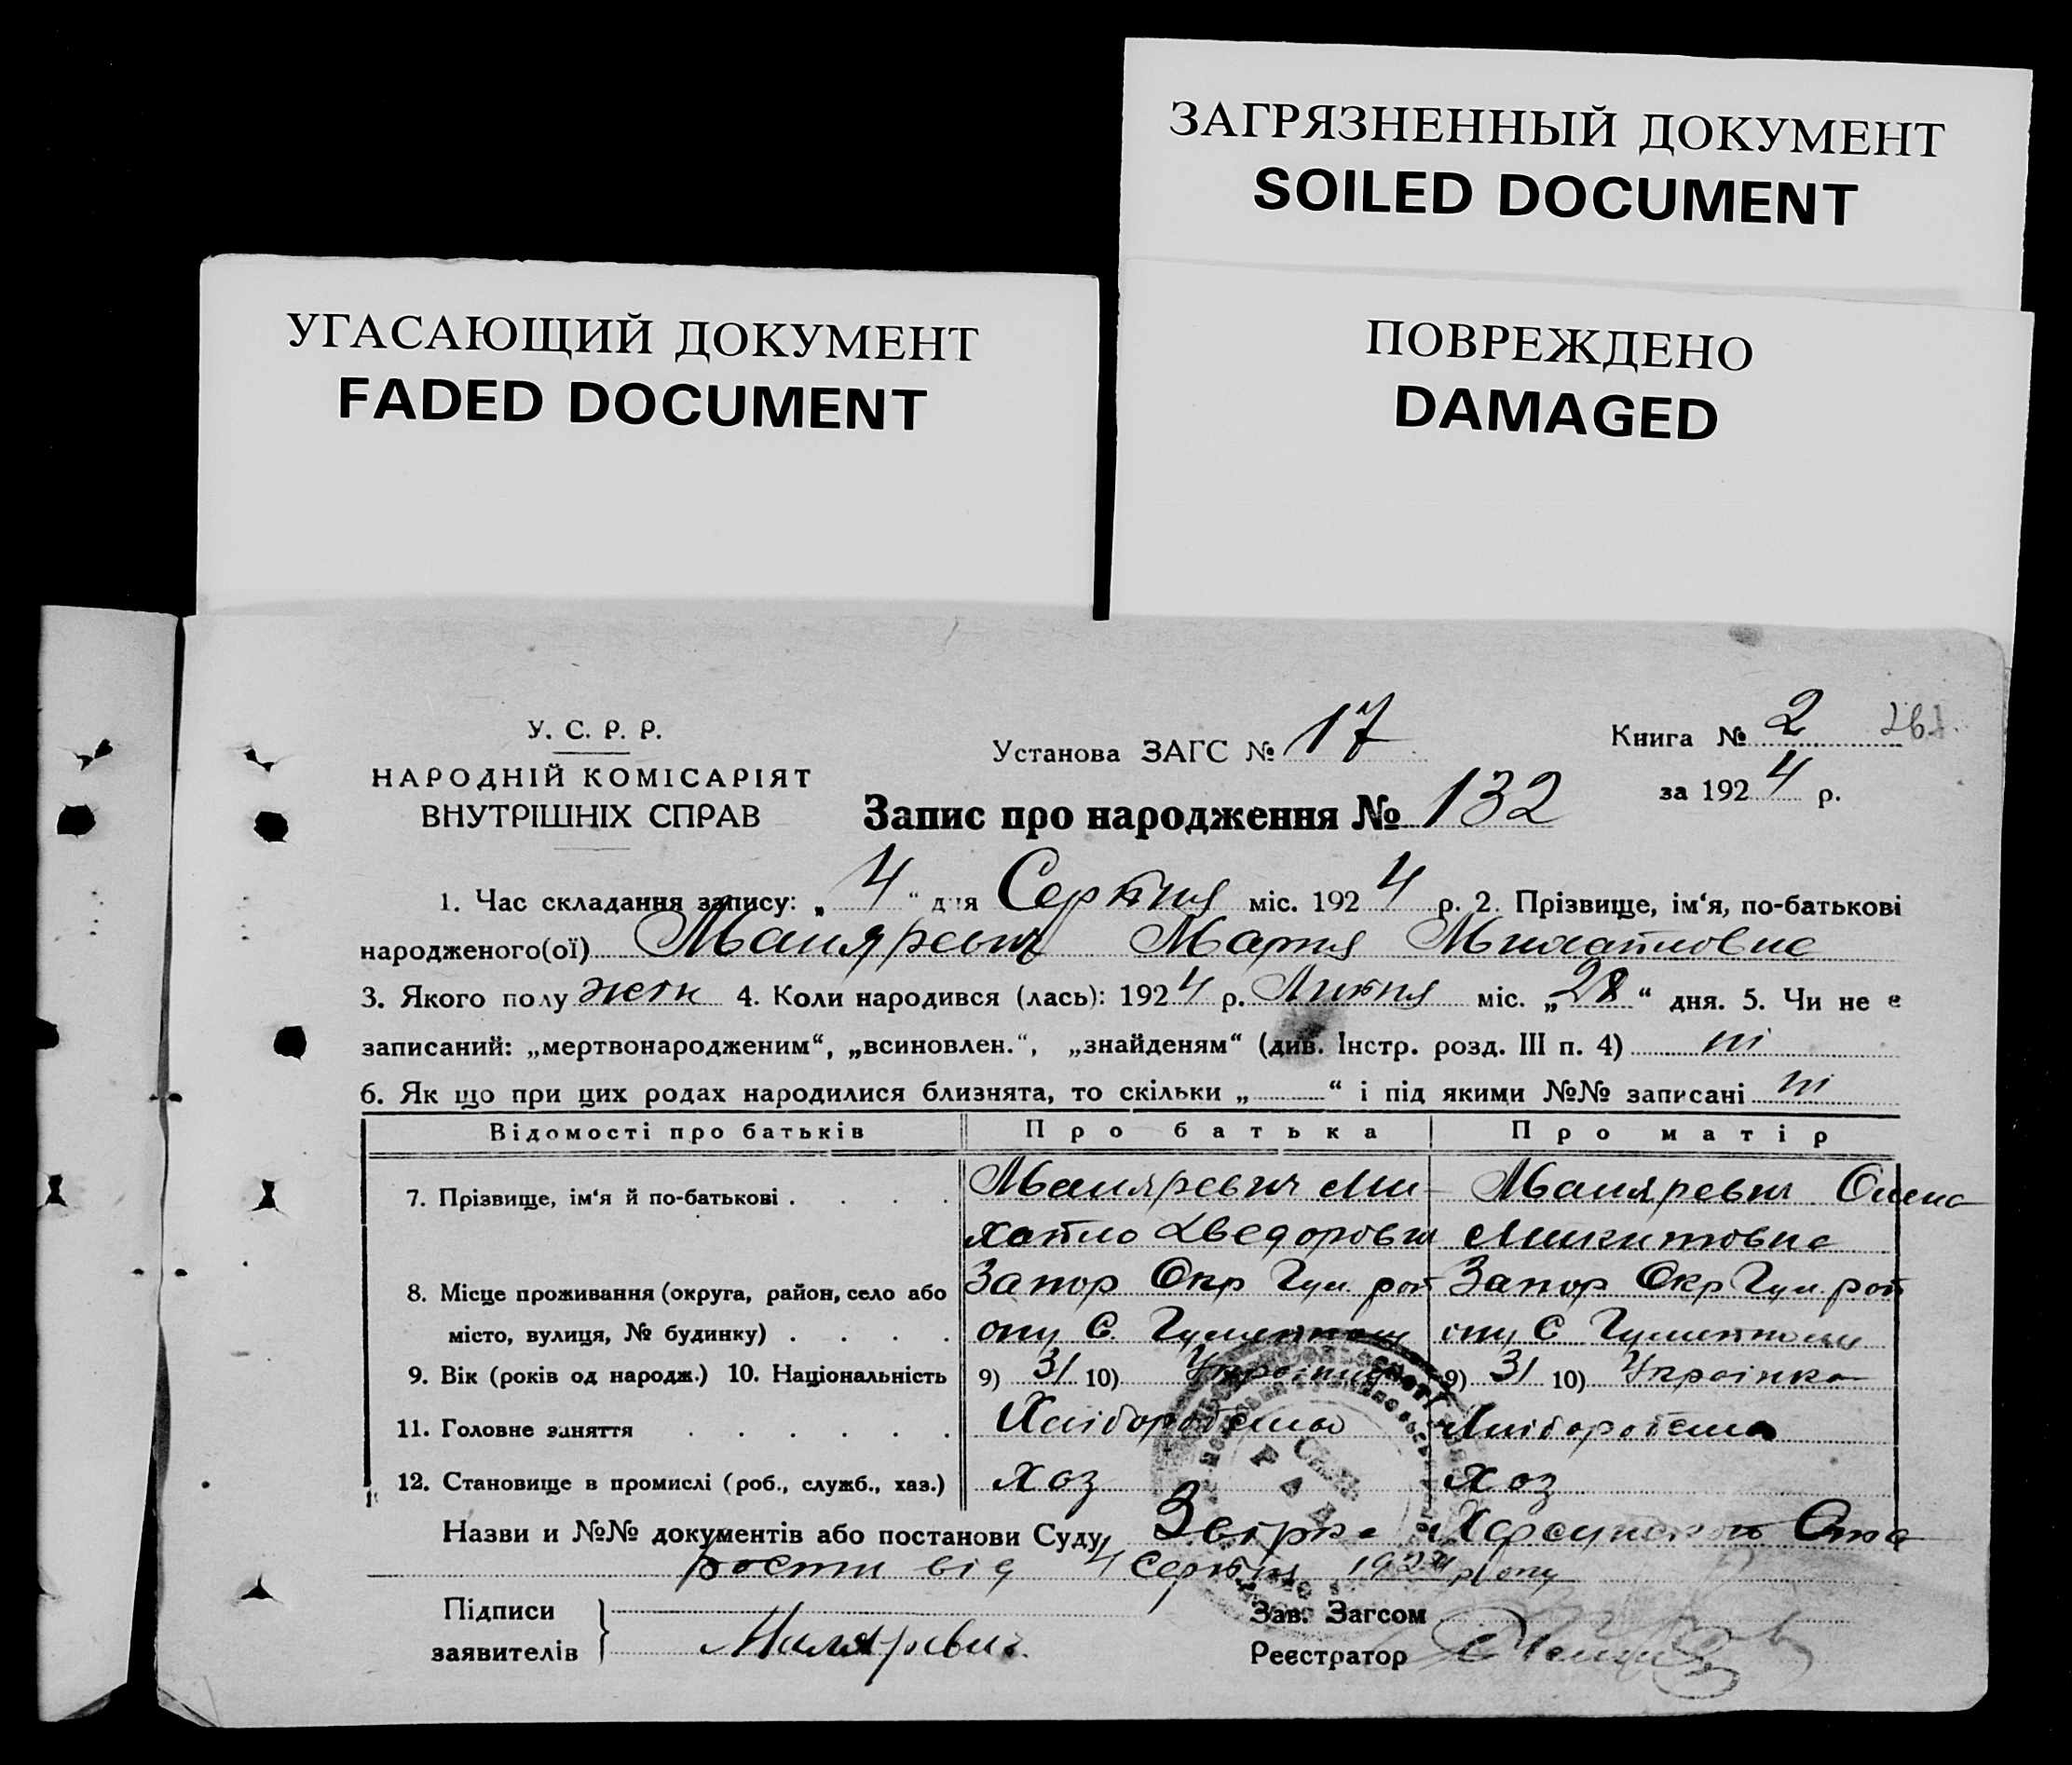 ЗАГРЯЗНЕННЫЙ ДОКУМЕНТ
SOILED DOCUMENT
УГАСАЮЩИЙ ДОКУМЕНТ
FADED DOCUMENT
ПОВРЕЖДЕНО
DAMAGED
У. С. Р. Р.
НАРОДНІЙ КОМІСАРІЯТ
ВНУТРІШНІХ СПРАВ
Установа ЗАГС № 17
Книга № 2
за 1924 р.
Запис про народження № 132
1. Час складання запису: „4“ дня Серпня міс. 1924 р. 2. Прізвище, ім‘я, по-батькові
народженого(ої) Маляревич Мария Михайловна
3. Якого полу жін 4. Коли народився (лась): 1924 р. Липня міс. „28“ дня. 5. Чи не є
записаний: „мертвонародженим“, „всиновлен.“, „знайденям“ (див. Інстр. розд. III п. 4) ні
6. Як що при цих родах народилися близнята, то скільки „ “ і під якими №№ записані ні
Відомості про батьків Про батька Про матір
7. Прізвище, ім‘я й по-батькові Маляревич Ми- Маляревич Олена
хайло Хведорович Микитовна
8. Місце проживання (округа, район, село або Запор Окр Гул. рай Запор Окр Гул. рай
місто, вулиця, № будинку) ону С. ону С
9. Вік (років од народж.) 10. Національність 9) 31 10) Українець 9) 31 10) Українка
11. Головне заняття Хліборобство Хліборобство
12. Становище в промислі (роб., служб., хаз.) хоз хоз
Назви и №№ документів або постанови Суду
рости від 4 Серпня 1924 року
Підписи
заявителів Маляревич
Зав. Загсом
Реєстратор